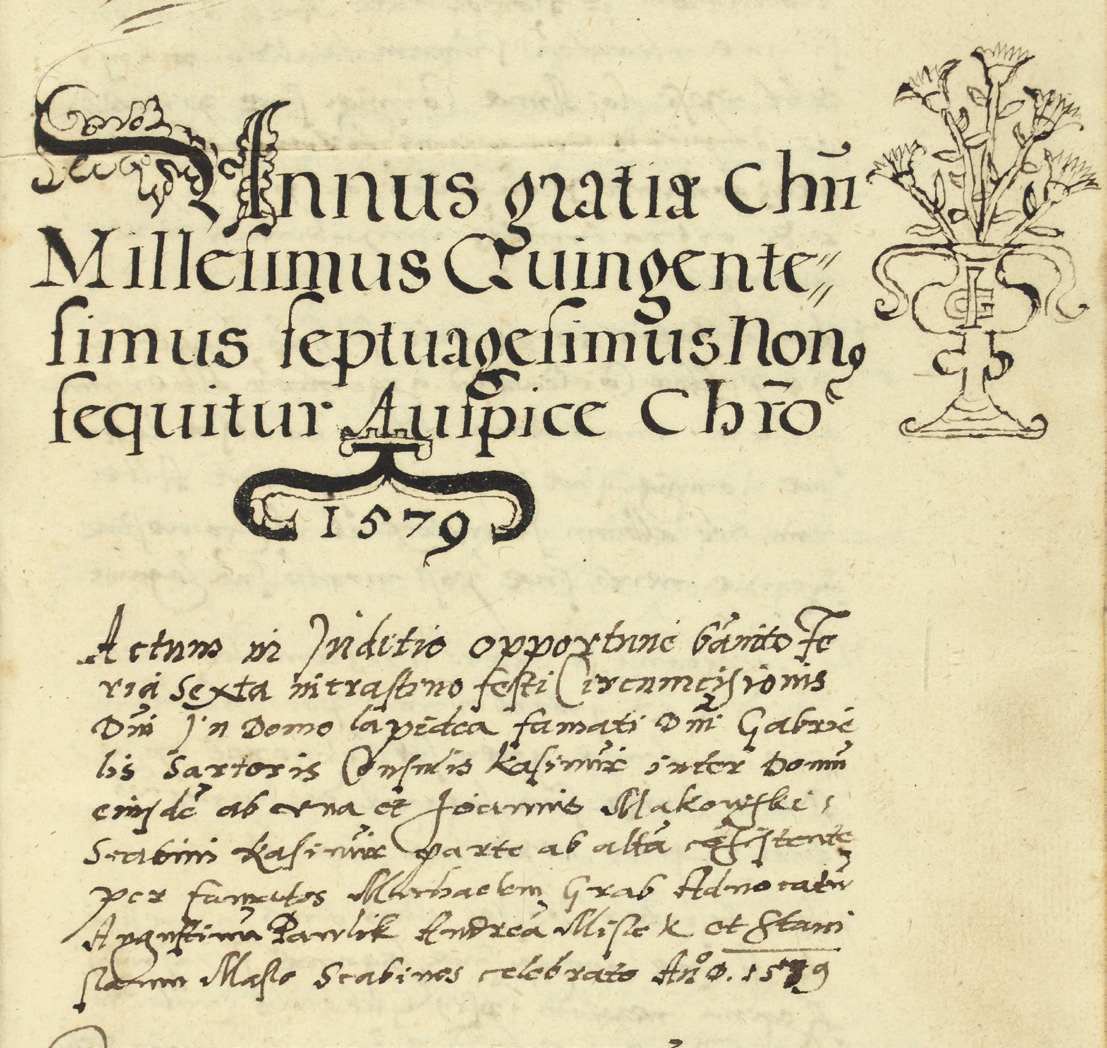 Annus gratiæ Chrī
Millesimus Quingente⸗
simus septuagesimus Non9
sequitur Auspice Chrō
1579
Actum in Juditio opportune bānito Fe
ria Sexta in crastino festi Circumcisionis
Dnī In Domo lapidea famati Dnī Gabrie
lis Sartoris Consulis Kasimir inter Domū
eiusdē ab una et Joannis Makowski
Scabini Kasimir parte ab altā cōsistente
per famatos Michaelem Grab Aduocatū
Augustinū Pawlik Andreā Misie K et Stani
slaum Maslo Scabinos celebrato Año. 1579